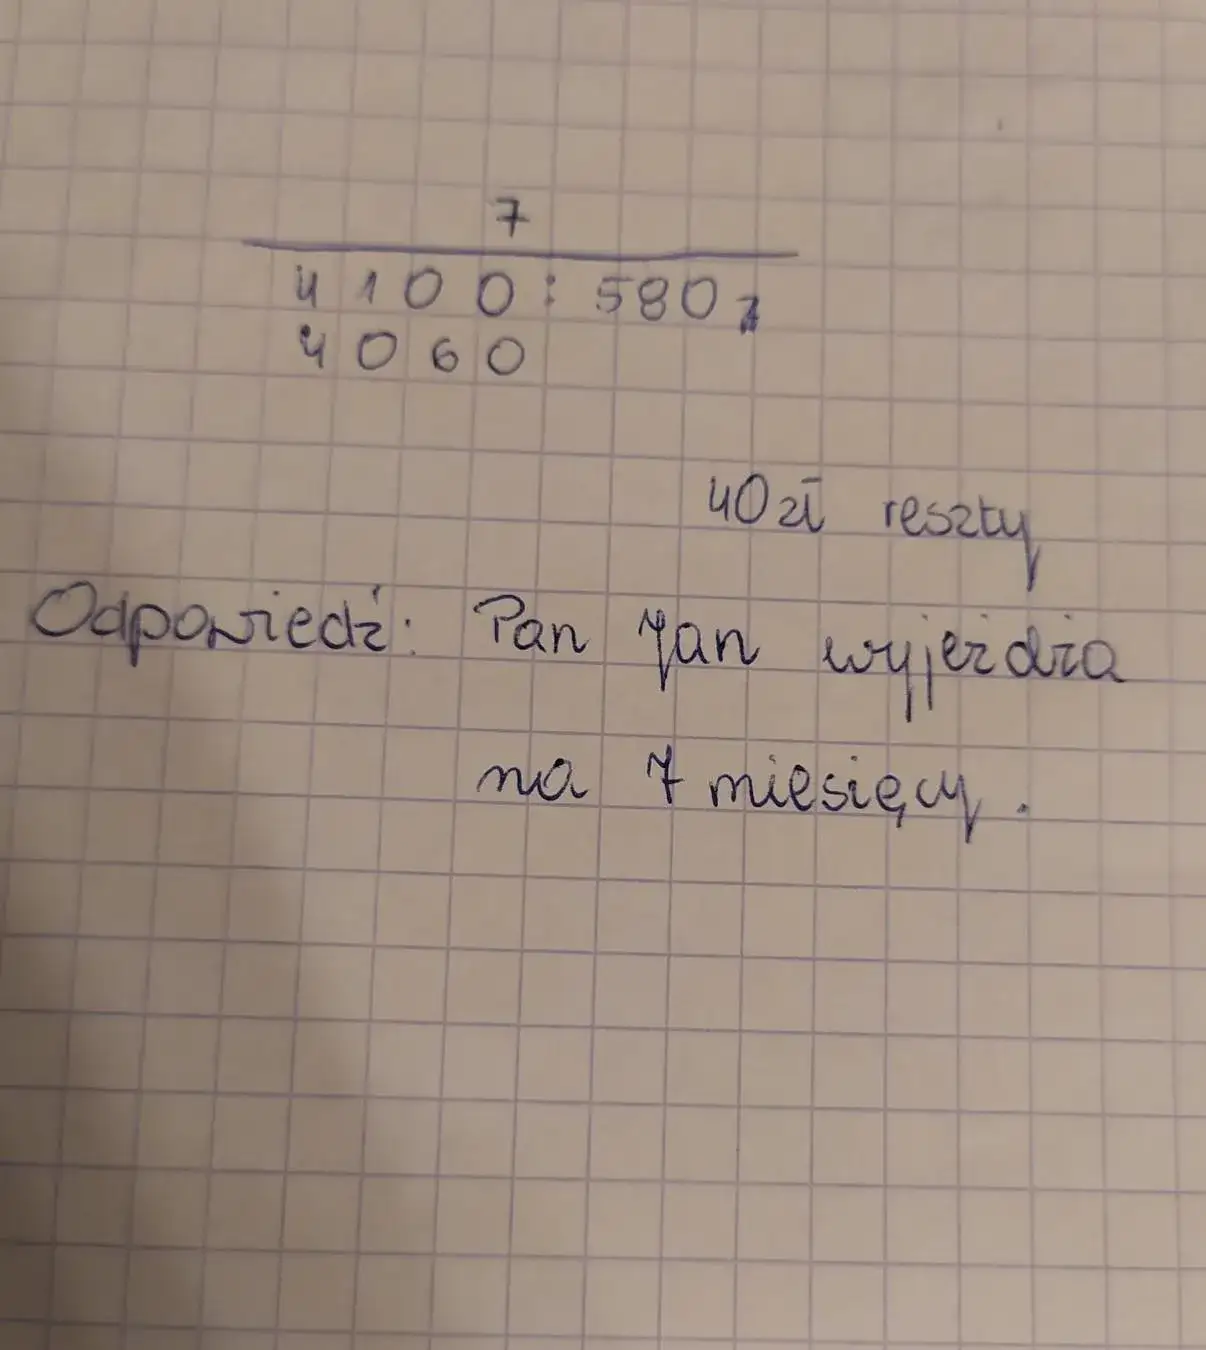 7
4100:580
4060
40zł reszty
Odpowiedź: Pan Jan wyjeżdża
na 7 miesięcy.